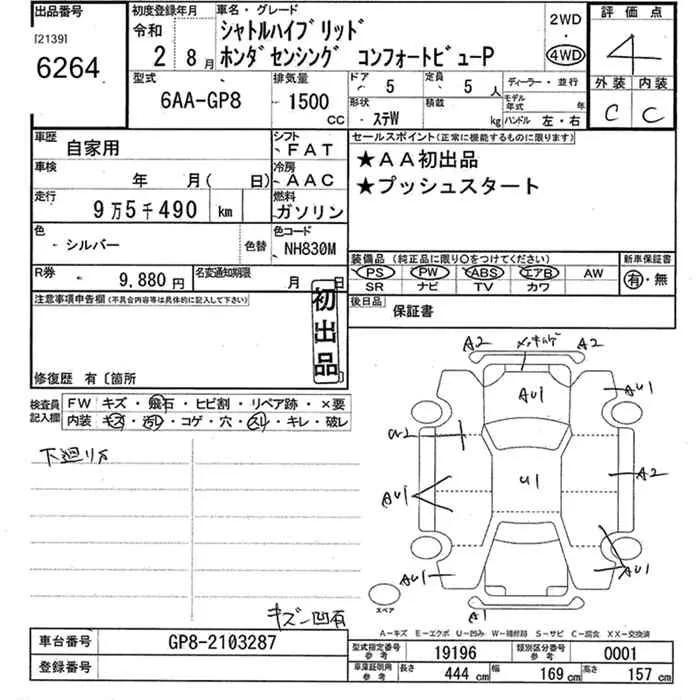 出品番号
[2139]
6264
初度登録年月
令和
2 8月
車名・グレード
シャトルハイブリッド
ホンダセンシング コンフォートビューP
2WD
・
4WD
評価点
4
外装 内装
C C
型式
6AA-GP8
排気量
1500
CC
ドア
5
定員
5 人
形状
ステW
積載
kg
ディーラー・並行
モデル年式 年
ハンドル 左・右
車歴
自家用
シフト
FAT
車検
年 月( 日)
冷房
AAC
走行
9万5千490 km
燃料
ガソリン
セールスポイント(正常に機能するものに限ります)
★AA初出品
★プッシュスタート
色
シルバー
色替
色コード
NH830M
装備品(純正品に限り○をつけてください)
PS PW ABS エアB AW
SR ナビ TV カワ
新車保証書
有・無
R券
9,880円
名変通知期限
月 日
後日品
保証書
注意事項申告欄(不具合内容等は具体的に記入して下さい)
初出品
修復歴 有〔箇所
検査員記入欄
FW キズ・飛石・ヒビ割・リペア跡・×要
内装 キズ・汚レ・コゲ・穴・スレ・キレ・破レ
下廻りサ
キズ凹有
A2
A2
AU1
AU1
A2
U1
AU1
AU1
AU1
A1
スペア
A-キズ E-エクボ U-凹み W-補修跡 S-サビ C-腐食 XX-交換済
車台番号
GP8-2103287
登録番号
型式指定番号
参考
19196
類別区分番号
参考
0001
車庫証明用
参考
長さ
444 cm
幅
169 cm
高さ
157 cm